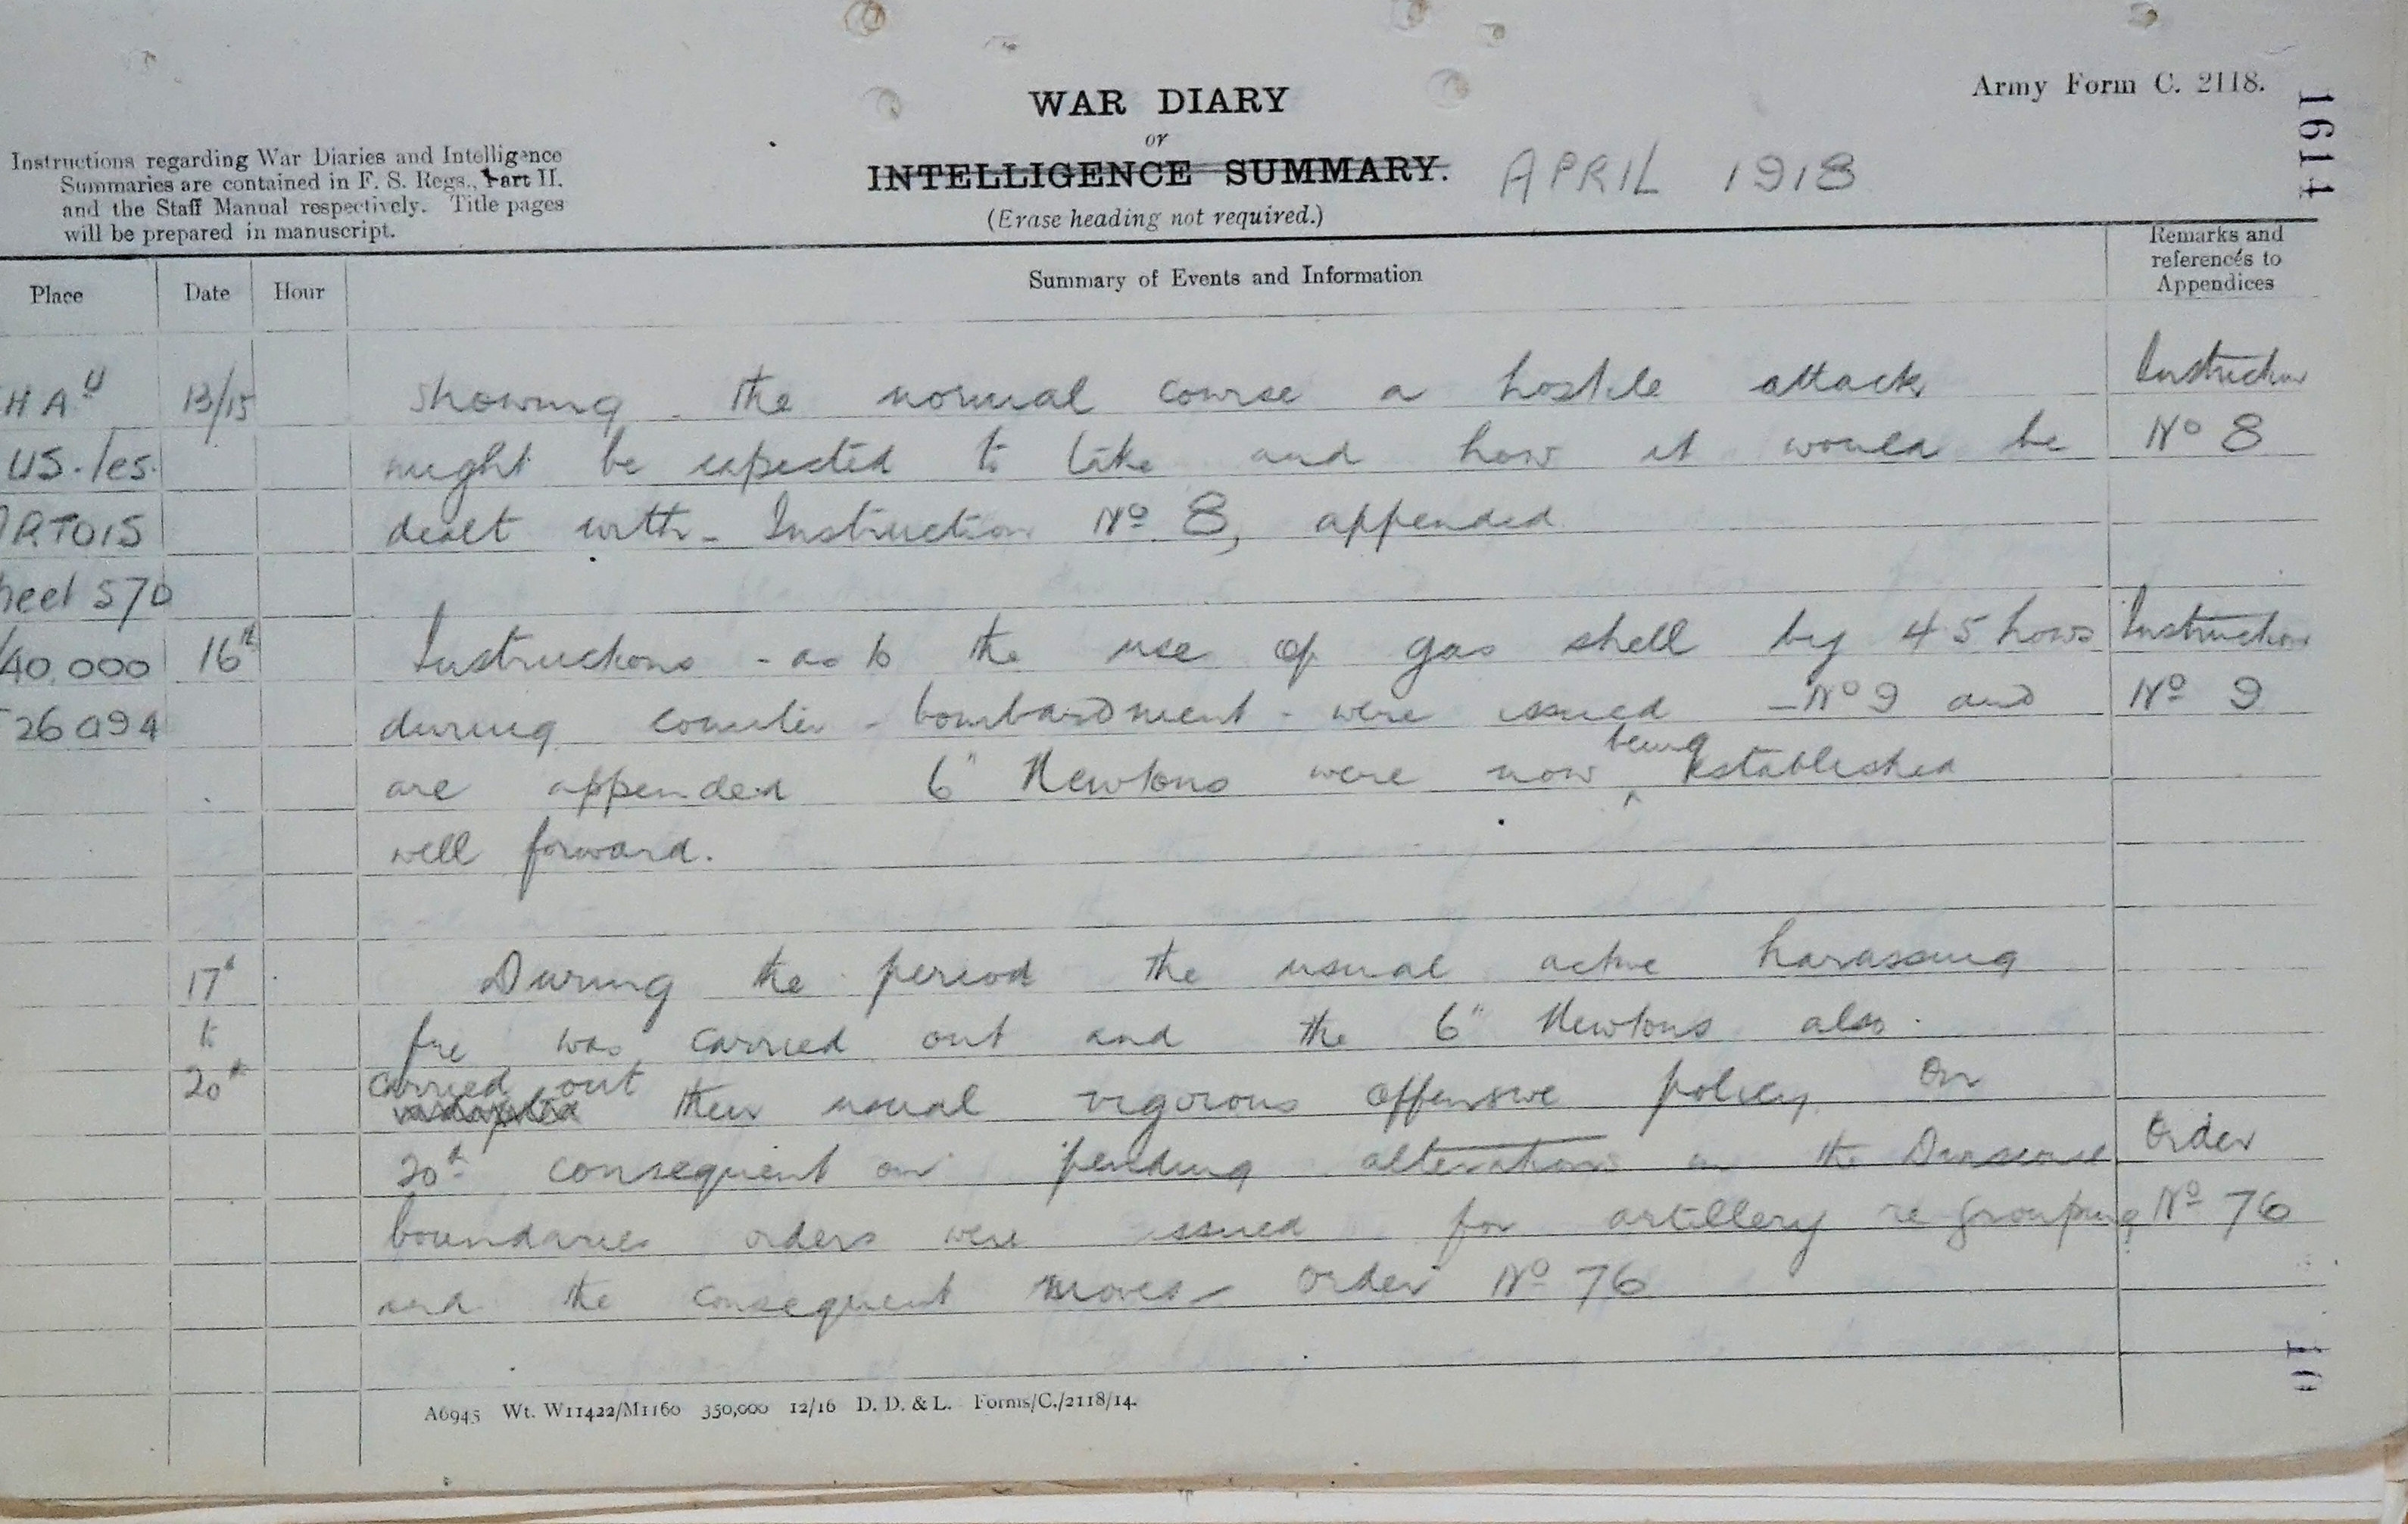 Army Form C. 2118.
1614
WAR DIARY
or
INTELLIGENCE SUMMARY.
APRIL 1918
(Erase heading not required.)
Instructions regarding War Diaries and Intelligence
Summaries are contained in F. S. Regs., Part II.
and the Staff Manual respectively. Title pages
will be prepared in manuscript.
Place Date Hour Summary of Events and Information Remarks and references to Appendices
13/15 showing the normal course a hostile attack Instruction
US-les- might be expected to take and how it would be No 8
ARTOIS dealt with - Instruction No 8, appended
heet 57D
/40,000 16th Instructions - as to the use of gas shell by 4 5 hows Instruction
26 a 9 4 during counter - bombardment - were issued - No 9 and No 9
are appended 6" Newtons were now being established
well forward.
17th During the period the usual active harassing
to fire was carried out and the 6" Newtons also
20th carried out their usual vigorous offensive policy On
20th consequent on pending alterations in the Divisional Order
boundaries orders were issued for artillery re grouping No 76
and the consequent moves - Order No 76
A6945 Wt. W11422/M1160 350,000 12/16 D. D. & L. Forms/C./2118/14.